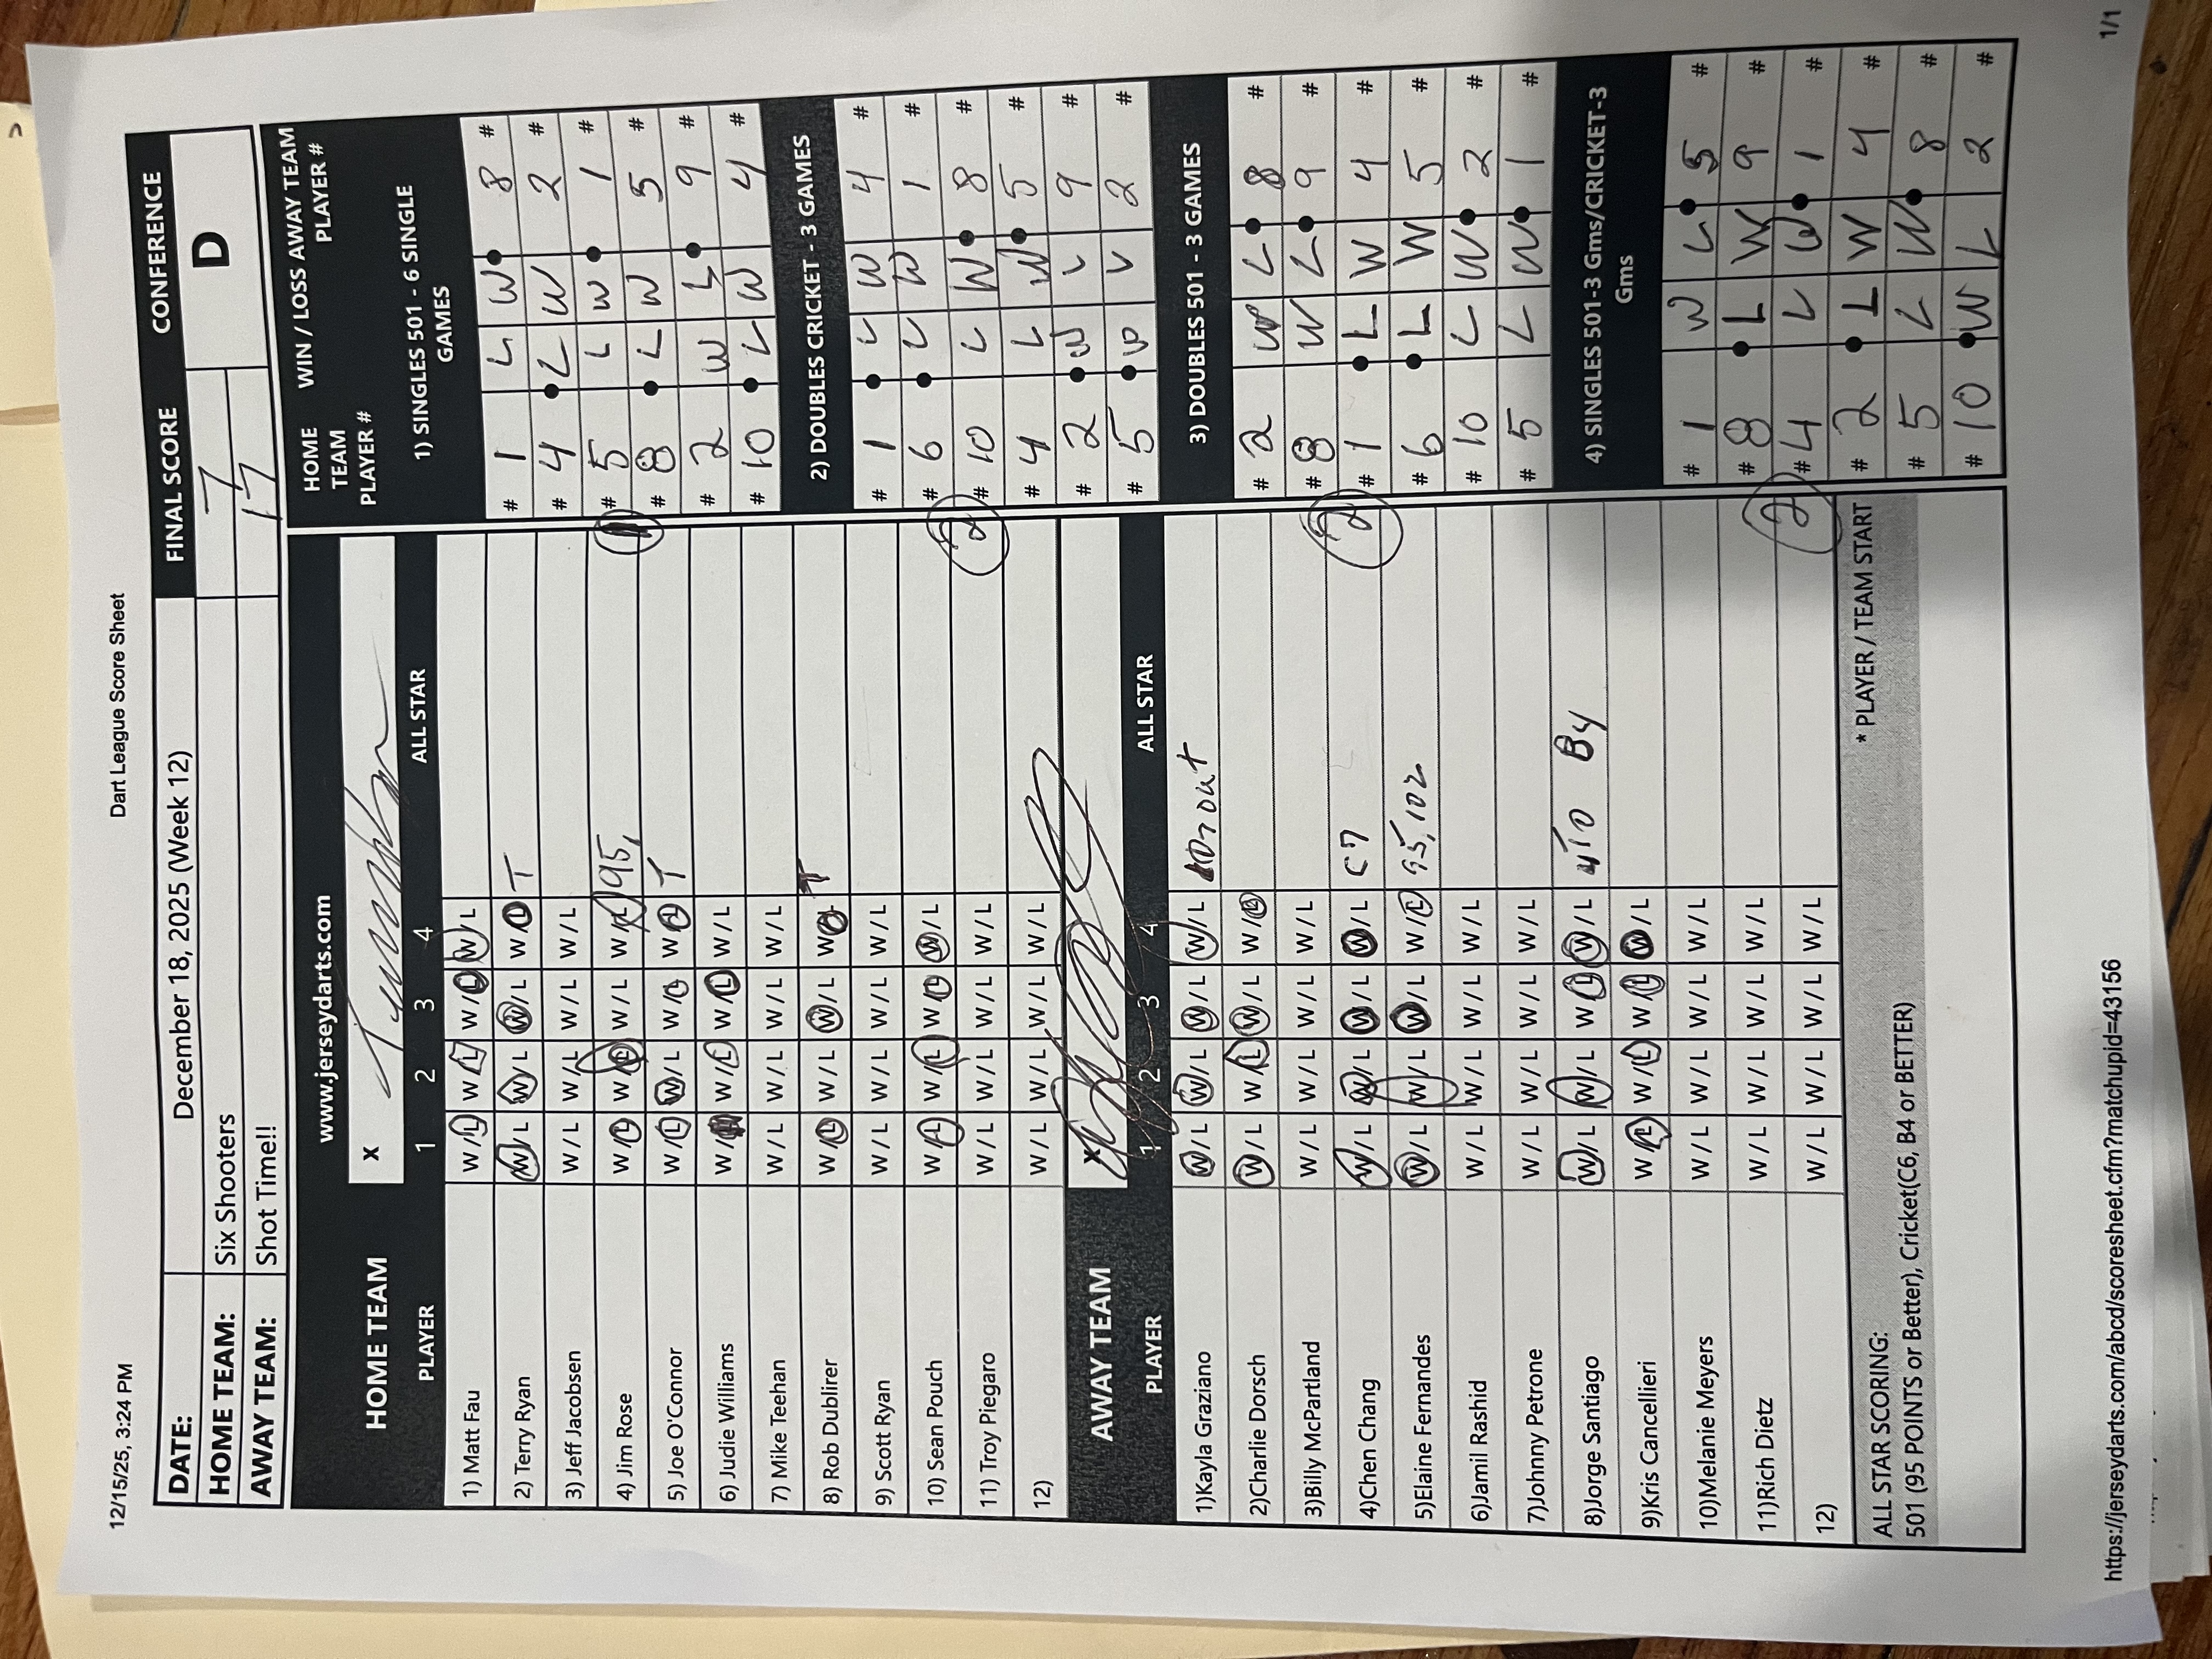 12/15/25, 3:24 PM
Dart League Score Sheet
DATE: December 18, 2025 (Week 12) FINAL SCORE CONFERENCE
HOME TEAM: Six Shooters 7 D
AWAY TEAM: Shot Time!! 17
www.jerseydarts.com
HOME TEAM X
PLAYER 1 2 3 4 ALL STAR
1) Matt Fau W/L W/L W/L W/L
2) Terry Ryan W/L W/L W/L W/L T
3) Jeff Jacobsen W/L W/L W/L W/L
4) Jim Rose W/L W/L W/L W/L 95,
5) Joe O'Connor W/L W/L W/L W/L T
6) Judie Williams W/L W/L W/L W/L
7) Mike Teehan W/L W/L W/L W/L
8) Rob Dublirer W/L W/L W/L W/L T
9) Scott Ryan W/L W/L W/L W/L
10) Sean Pouch W/L W/L W/L W/L
11) Troy Piegaro W/L W/L W/L W/L
12) W/L W/L W/L W/L
AWAY TEAM X
PLAYER 1 2 3 4 ALL STAR
1)Kayla Graziano W/L W/L W/L W/L
2)Charlie Dorsch W/L W/L W/L W/L
3)Billy McPartland W/L W/L W/L W/L
4)Chen Chang W/L W/L W/L W/L C7
5)Elaine Fernandes W/L W/L W/L W/L 95, 102
6)Jamil Rashid W/L W/L W/L W/L
7)Johnny Petrone W/L W/L W/L W/L
8)Jorge Santiago W/L W/L W/L W/L B4
9)Kris Cancellieri W/L W/L W/L W/L
10)Melanie Meyers W/L W/L W/L W/L
11)Rich Dietz W/L W/L W/L W/L
12) W/L W/L W/L W/L
ALL STAR SCORING: * PLAYER / TEAM START
501 (95 POINTS or Better), Cricket(C6, B4 or BETTER)
HOME TEAM PLAYER # WIN / LOSS AWAY TEAM PLAYER #
1) SINGLES 501 - 6 SINGLE GAMES
# 1 L W 8 #
# 4 L W 2 #
# 5 L W 1 #
# 8 L W 5 #
# 2 W L 9 #
# 10 L W 4 #
2) DOUBLES CRICKET - 3 GAMES
# 1 L W 4 #
# 6 L W 1 #
2
# 10 L W 8 #
# 4 L W 5 #
# 2 W L 9 #
# 5 W L 2 #
3) DOUBLES 501 - 3 GAMES
# 2 W L 8 #
# 8 W L 9 #
2
# 1 L W 4 #
# 6 L W 5 #
# 10 L W 2 #
# 5 L W 1 #
4) SINGLES 501-3 Gms/CRICKET-3 Gms
# 1 W L 5 #
# 8 L W 9 #
2
# 4 L W 1 #
# 2 L W 4 #
# 5 L W 8 #
# 10 W L 2 #
https://jerseydarts.com/abcd/scoresheet.cfm?matchupid=43156
1/1